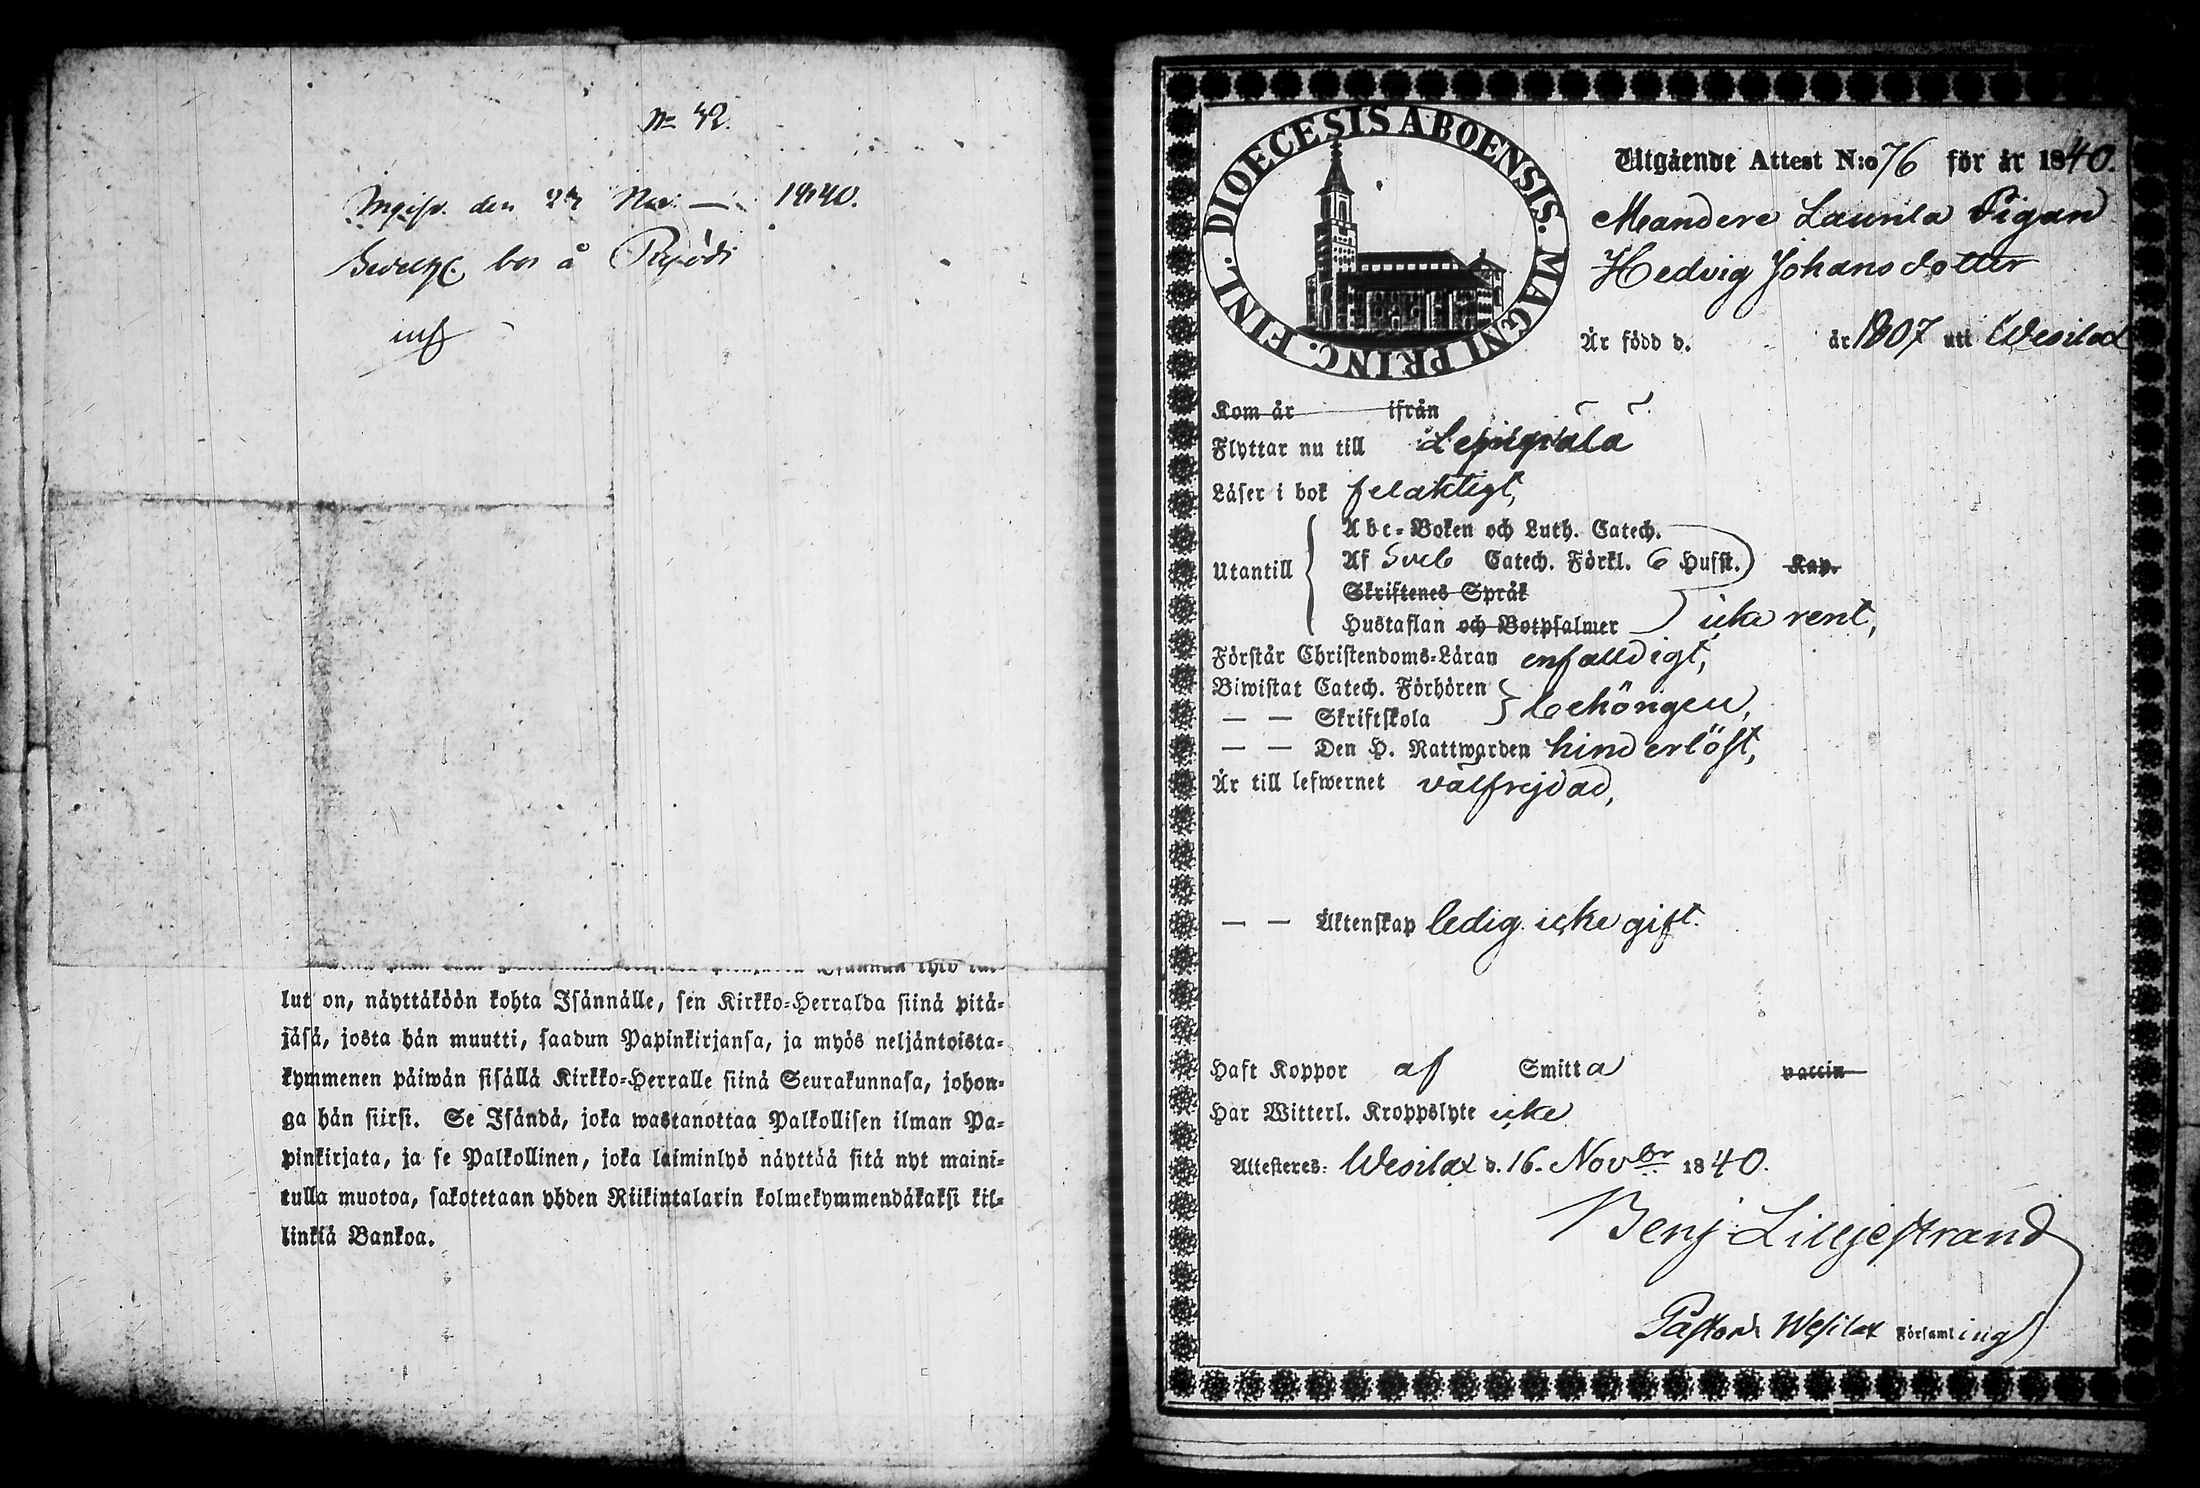 No 42.
den Nov. — 1840.
bor å
lut on, näyttäköön kohta Isännälle, sen Kirkko-Herralda siinä pitä-
jäsä, josta hän muutti, saadun Papinkirjansa, ja myös neljäntoista-
kymmenen päiwän sisällä Kirkko-Herralle siinä Seurakunnasa, johon-
ga hän siirsi. Se Isändä, joka wastanottaa Palkollisen ilman Pa-
pinkirjata, ja se Palkollinen, joka laiminlyö näyttää sitä nyt maini-
tulla muotoa, sakotetaan yhden Riikintalarin kolmekymmendäkaksi kil-
linkiä Bankoa.
DIOECESIS ABOENSIS. MAGNI PRINC. FINL.
Utgående Attest N:o 76 för år 1840.
Laurila Pigan
Hedvig Johansdotter
Är född d. år 1807 uti Wesilax
Kom år ifrån
Flyttar nu till Lempiälä
Läser i bok felaktigt,
Utantill
Abc-Boken och Luth. Catech.
Af Sveb Catech. Förkl. 6 Hufst. Kap.
Skriftenes Språk
Hustaflan och Botpsalmer icke rent,
Förstår Christendoms-Läran enfalldigt,
Biwistat Catech. Förhören
— — Skriftskola behörigen,
— — Den H. Nattwarden hinderlöst,
Är till lefwernet välfrejdad,
— — Äktenskap ledig icke gift.
Haft Koppor af Smitta vaccin
Har Witterl. Kroppslyte icke
Attesteres: Wesilax d. 16. Novbr 1840.
Benj Lilljestrand
Pastor i Wesilax Församling